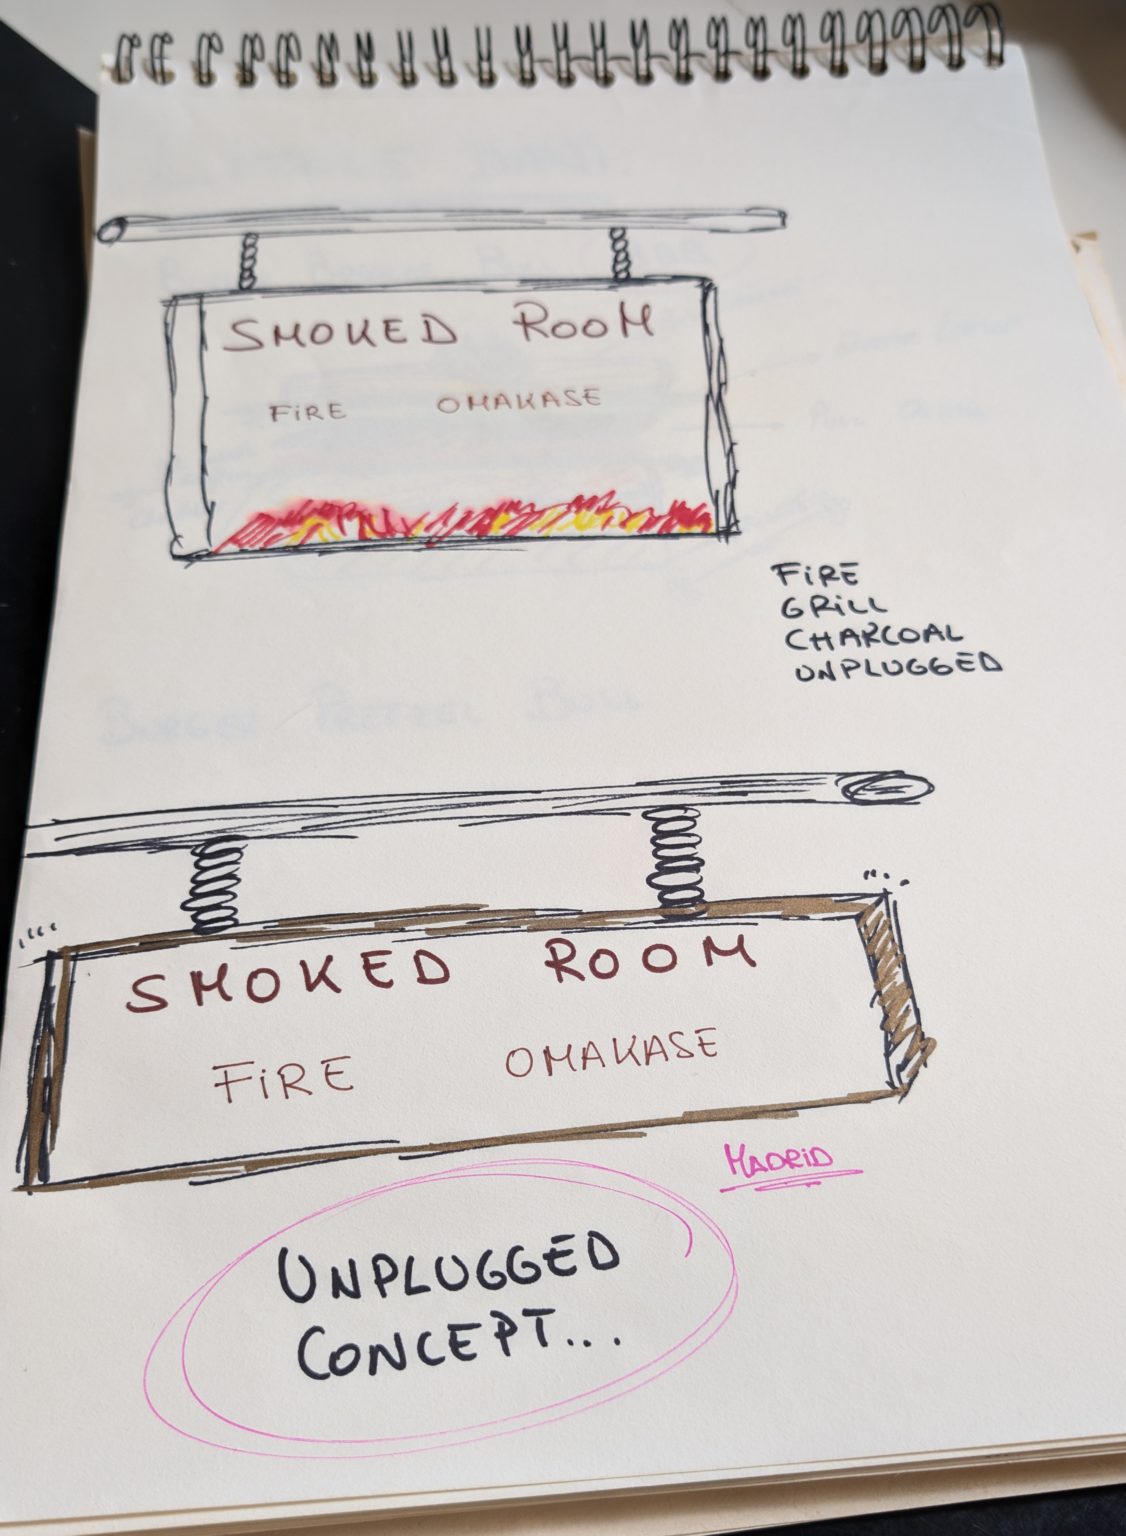 SMOKED ROOM
FiRE OMAKASE
FiRE
GRiLL
CHARCOAL
UNPLUGGED
SMOKED ROOM
FiRE OMAKASE
MADRiD
UNPLUGGED
CONCEPT...
BURGER PRETZEL BUNS